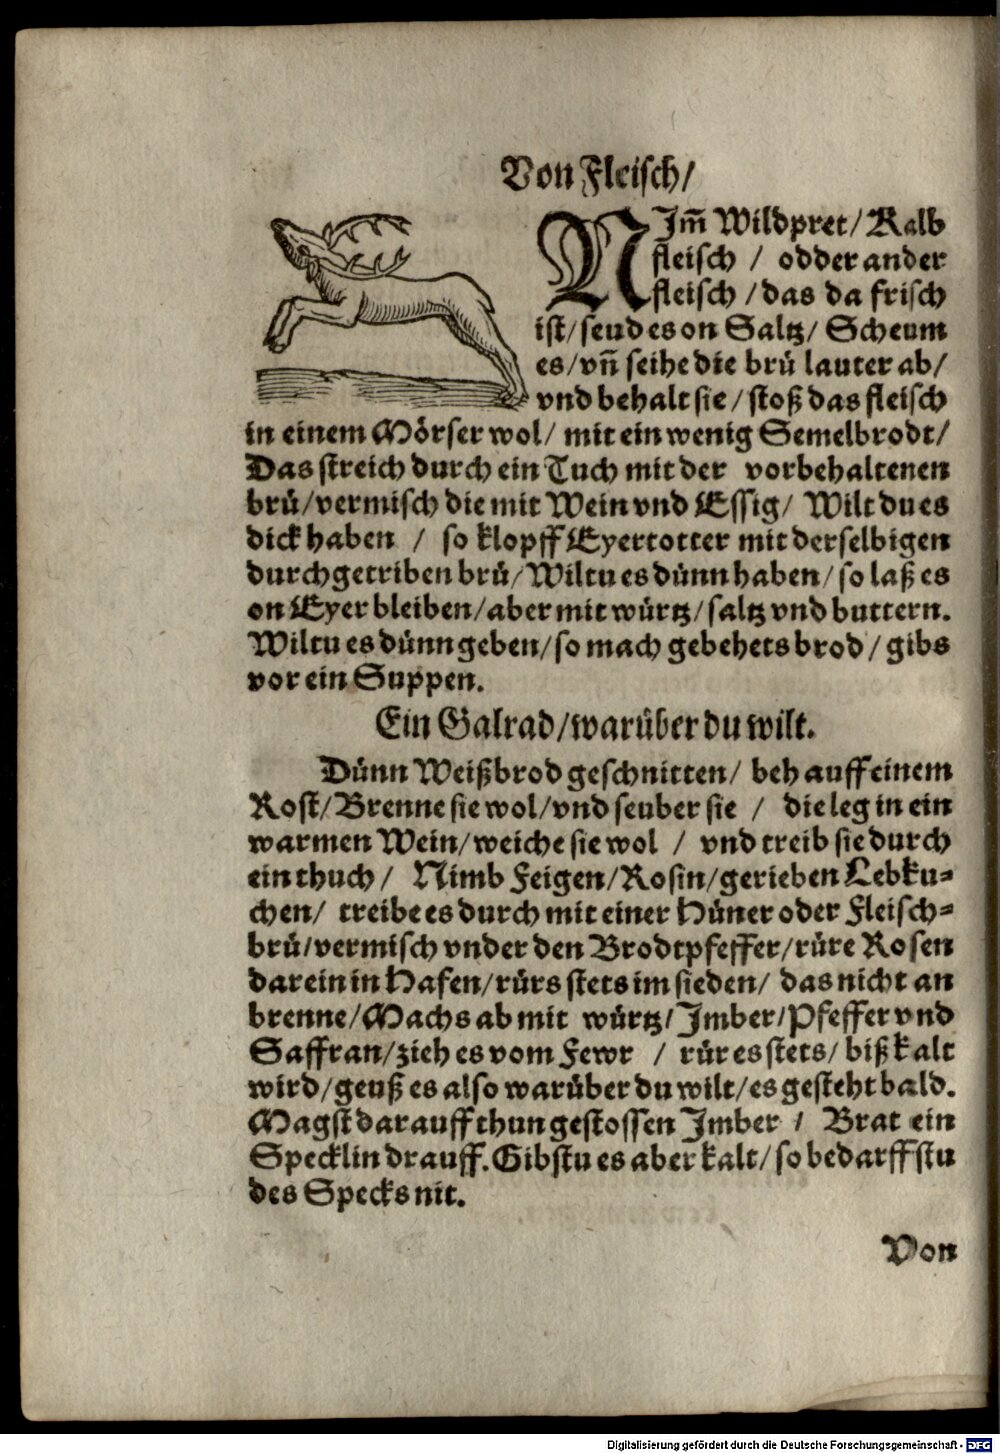 Von Fleisch/
NJm̃ Wildpret/ Kalb
fleisch / odder ander
fleisch / das da frisch
ist/ seud es on Saltz/ Scheum
es/ vñ seihe die brů lauter ab/
vnd behalt sie / stoß das fleisch
in einem Mörser wol/ mit ein wenig Semelbrodt/
Das streich durch ein Tuch mit der vorbehaltenen
brů/ vermisch die mit Wein vnd Essig/ Wilt du es
dick haben / so klopff Eyertotter mit derselbigen
durchgetriben brů/ Wiltu es dünn haben/ so laß es
on Eyer bleiben/ aber mit würtz/ saltz vnd buttern.
Wiltu es dünn geben/ so mach gebehets brod / gibs
vor ein Suppen.
Ein Galrad/ warüber du wilt.
Dünn Weißbrod geschnitten/ beh auff einem
Rost/ Brenne sie wol/ vnd seuber sie / die leg in ein
warmen Wein/ weiche sie wol / vnd treib sie durch
ein thuch/ Nimb Feigen/ Rosin/ gerieben Lebku⸗
chen/ treibe es durch mit einer Hüner oder Fleisch⸗
brů/ vermisch vnder den Brodtpfeffer/ rüre Rosen
darein in Hafen/ rürs stets im sieden/ das nicht an
brenne/ Machs ab mit würtz/ Jmber/ Pfeffer vnd
Saffran/ zieh es vom Fewr / rür es stets/ biß kalt
wird/ geuß es also warüber du wilt/ es gesteht bald.
Magst darauff thun gestossen Jmber / Brat ein
Specklin drauff. Gibstu es aber kalt/ so bedarffstu
des Specks nit.
Von
Digitalisierung gefördert durch die Deutsche Forschungsgemeinschaft - DFG